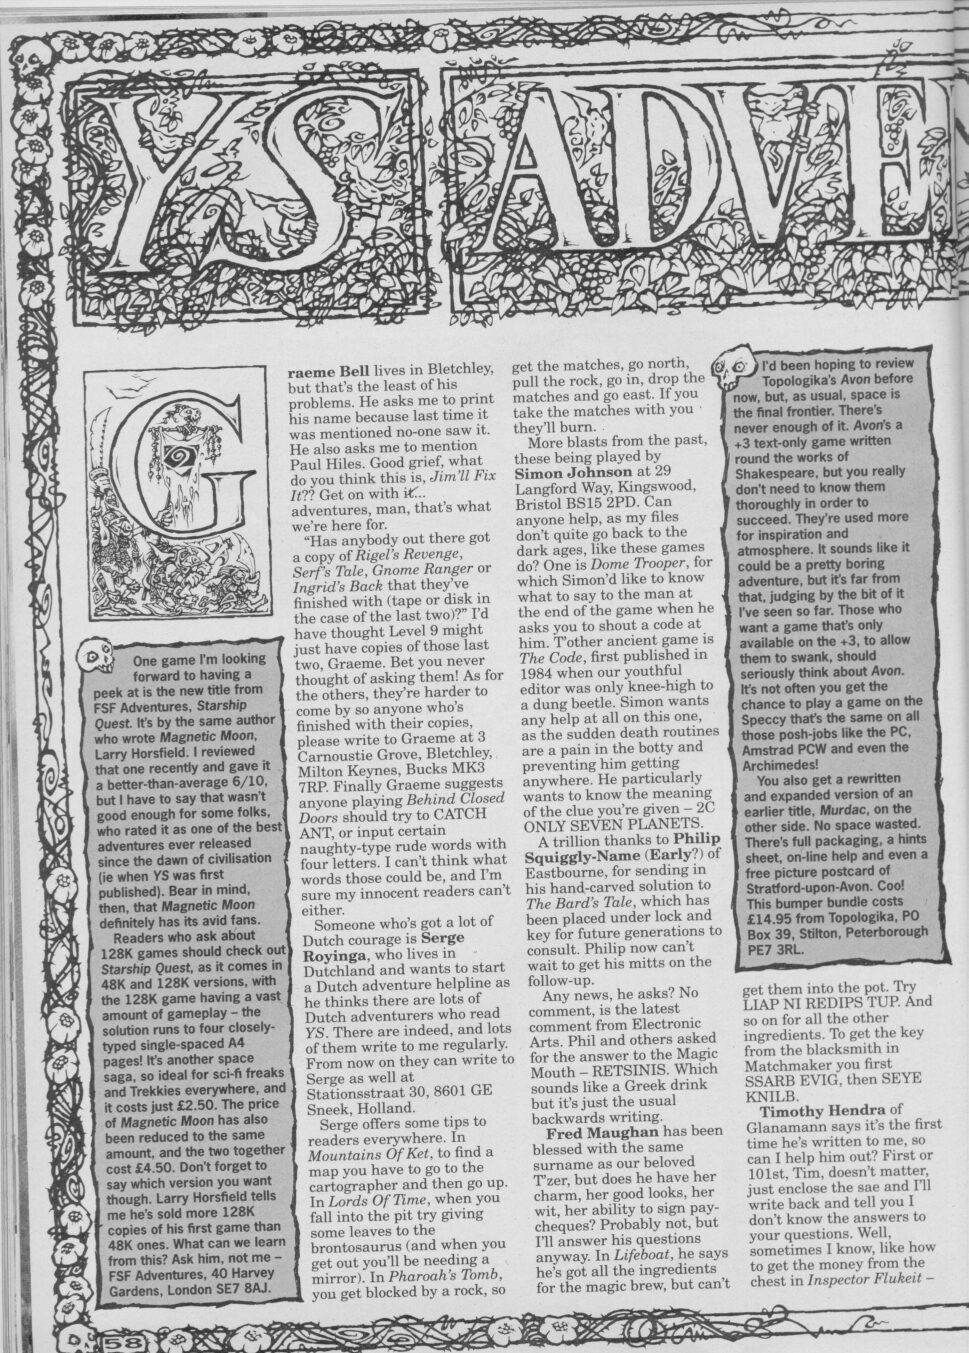 YS ADVE
G
raeme Bell lives in Bletchley,
but that's the least of his
problems. He asks me to print
his name because last time it
was mentioned no-one saw it.
He also asks me to mention
Paul Hiles. Good grief, what
do you think this is, Jim'll Fix
It?? Get on with it...
adventures, man, that's what
we're here for.
"Has anybody out there got
a copy of Rigel's Revenge,
Serf's Tale, Gnome Ranger or
Ingrid's Back that they've
finished with (tape or disk in
the case of the last two)?" I'd
have thought Level 9 might
just have copies of those last
two, Graeme. Bet you never
thought of asking them! As for
the others, they're harder to
come by so anyone who's
finished with their copies,
please write to Graeme at 3
Carnoustie Grove, Bletchley,
Milton Keynes, Bucks MK3
7RP. Finally Graeme suggests
anyone playing Behind Closed
Doors should try to CATCH
ANT, or input certain
naughty-type rude words with
four letters. I can't think what
words those could be, and I'm
sure my innocent readers can't
either.
Someone who's got a lot of
Dutch courage is Serge
Royinga, who lives in
Dutchland and wants to start
a Dutch adventure helpline as
he thinks there are lots of
Dutch adventurers who read
YS. There are indeed, and lots
of them write to me regularly.
From now on they can write to
Serge as well at
Stationsstraat 30, 8601 GE
Sneek, Holland.
Serge offers some tips to
readers everywhere. In
Mountains Of Ket, to find a
map you have to go to the
cartographer and then go up.
In Lords Of Time, when you
fall into the pit try giving
some leaves to the
brontosaurus (and when you
get out you'll be needing a
mirror). In Pharoah's Tomb,
you get blocked by a rock, so
One game I'm looking
forward to having a
peek at is the new title from
FSF Adventures, Starship
Quest. It's by the same author
who wrote Magnetic Moon,
Larry Horsfield. I reviewed
that one recently and gave it
a better-than-average 6/10,
but I have to say that wasn't
good enough for some folks,
who rated it as one of the best
adventures ever released
since the dawn of civilisation
(ie when YS was first
published). Bear in mind,
then, that Magnetic Moon
definitely has its avid fans.
Readers who ask about
128K games should check out
Starship Quest, as it comes in
48K and 128K versions, with
the 128K game having a vast
amount of gameplay – the
solution runs to four closely-
typed single-spaced A4
pages! It's another space
saga, so ideal for sci-fi freaks
and Trekkies everywhere, and
it costs just £2.50. The price
of Magnetic Moon has also
been reduced to the same
amount, and the two together
cost £4.50. Don't forget to
say which version you want
though. Larry Horsfield tells
me he's sold more 128K
copies of his first game than
48K ones. What can we learn
from this? Ask him, not me –
FSF Adventures, 40 Harvey
Gardens, London SE7 8AJ.
get the matches, go north,
pull the rock, go in, drop the
matches and go east. If you
take the matches with you
they'll burn.
More blasts from the past,
these being played by
Simon Johnson at 29
Langford Way, Kingswood,
Bristol BS15 2PD. Can
anyone help, as my files
don't quite go back to the
dark ages, like these games
do? One is Dome Trooper, for
which Simon'd like to know
what to say to the man at
the end of the game when he
asks you to shout a code at
him. T'other ancient game is
The Code, first published in
1984 when our youthful
editor was only knee-high to
a dung beetle. Simon wants
any help at all on this one,
as the sudden death routines
are a pain in the botty and
preventing him getting
anywhere. He particularly
wants to know the meaning
of the clue you're given – 2C
ONLY SEVEN PLANETS.
A trillion thanks to Philip
Squiggly-Name (Early?) of
Eastbourne, for sending in
his hand-carved solution to
The Bard's Tale, which has
been placed under lock and
key for future generations to
consult. Philip now can't
wait to get his mitts on the
follow-up.
Any news, he asks? No
comment, is the latest
comment from Electronic
Arts. Phil and others asked
for the answer to the Magic
Mouth – RETSINIS. Which
sounds like a Greek drink
but it's just the usual
backwards writing.
Fred Maughan has been
blessed with the same
surname as our beloved
T'zer, but does he have her
charm, her good looks, her
wit, her ability to sign pay-
cheques? Probably not, but
I'll answer his questions
anyway. In Lifeboat, he says
he's got all the ingredients
for the magic brew, but can't
I'd been hoping to review
Topologika's Avon before
now, but, as usual, space is
the final frontier. There's
never enough of it. Avon's a
+3 text-only game written
round the works of
Shakespeare, but you really
don't need to know them
thoroughly in order to
succeed. They're used more
for inspiration and
atmosphere. It sounds like it
could be a pretty boring
adventure, but it's far from
that, judging by the bit of it
I've seen so far. Those who
want a game that's only
available on the +3, to allow
them to swank, should
seriously think about Avon.
It's not often you get the
chance to play a game on the
Speccy that's the same on all
those posh-jobs like the PC,
Amstrad PCW and even the
Archimedes!
You also get a rewritten
and expanded version of an
earlier title, Murdac, on the
other side. No space wasted.
There's full packaging, a hints
sheet, on-line help and even a
free picture postcard of
Stratford-upon-Avon. Coo!
This bumper bundle costs
£14.95 from Topologika, PO
Box 39, Stilton, Peterborough
PE7 3RL.
get them into the pot. Try
LIAP NI REDIPS TUP. And
so on for all the other
ingredients. To get the key
from the blacksmith in
Matchmaker you first
SSARB EVIG, then SEYE
KNILB.
Timothy Hendra of
Glanamann says it's the first
time he's written to me, so
can I help him out? First or
101st, Tim, doesn't matter,
just enclose the sae and I'll
write back and tell you I
don't know the answers to
your questions. Well,
sometimes I know, like how
to get the money from the
chest in Inspector Flukeit –
58